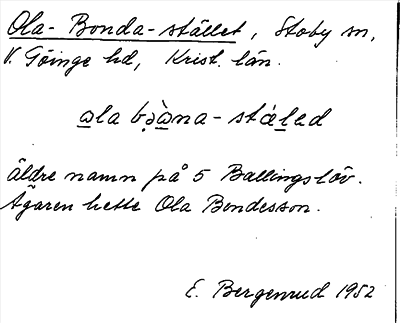 Ola-Bonda-stället, Stoby sn,
V. Göinge hd, Krist. län.
äldre namn på 5 Ballingslöv.
Ägaren hette Ola Bondesson.
E. Bergenrud 1952